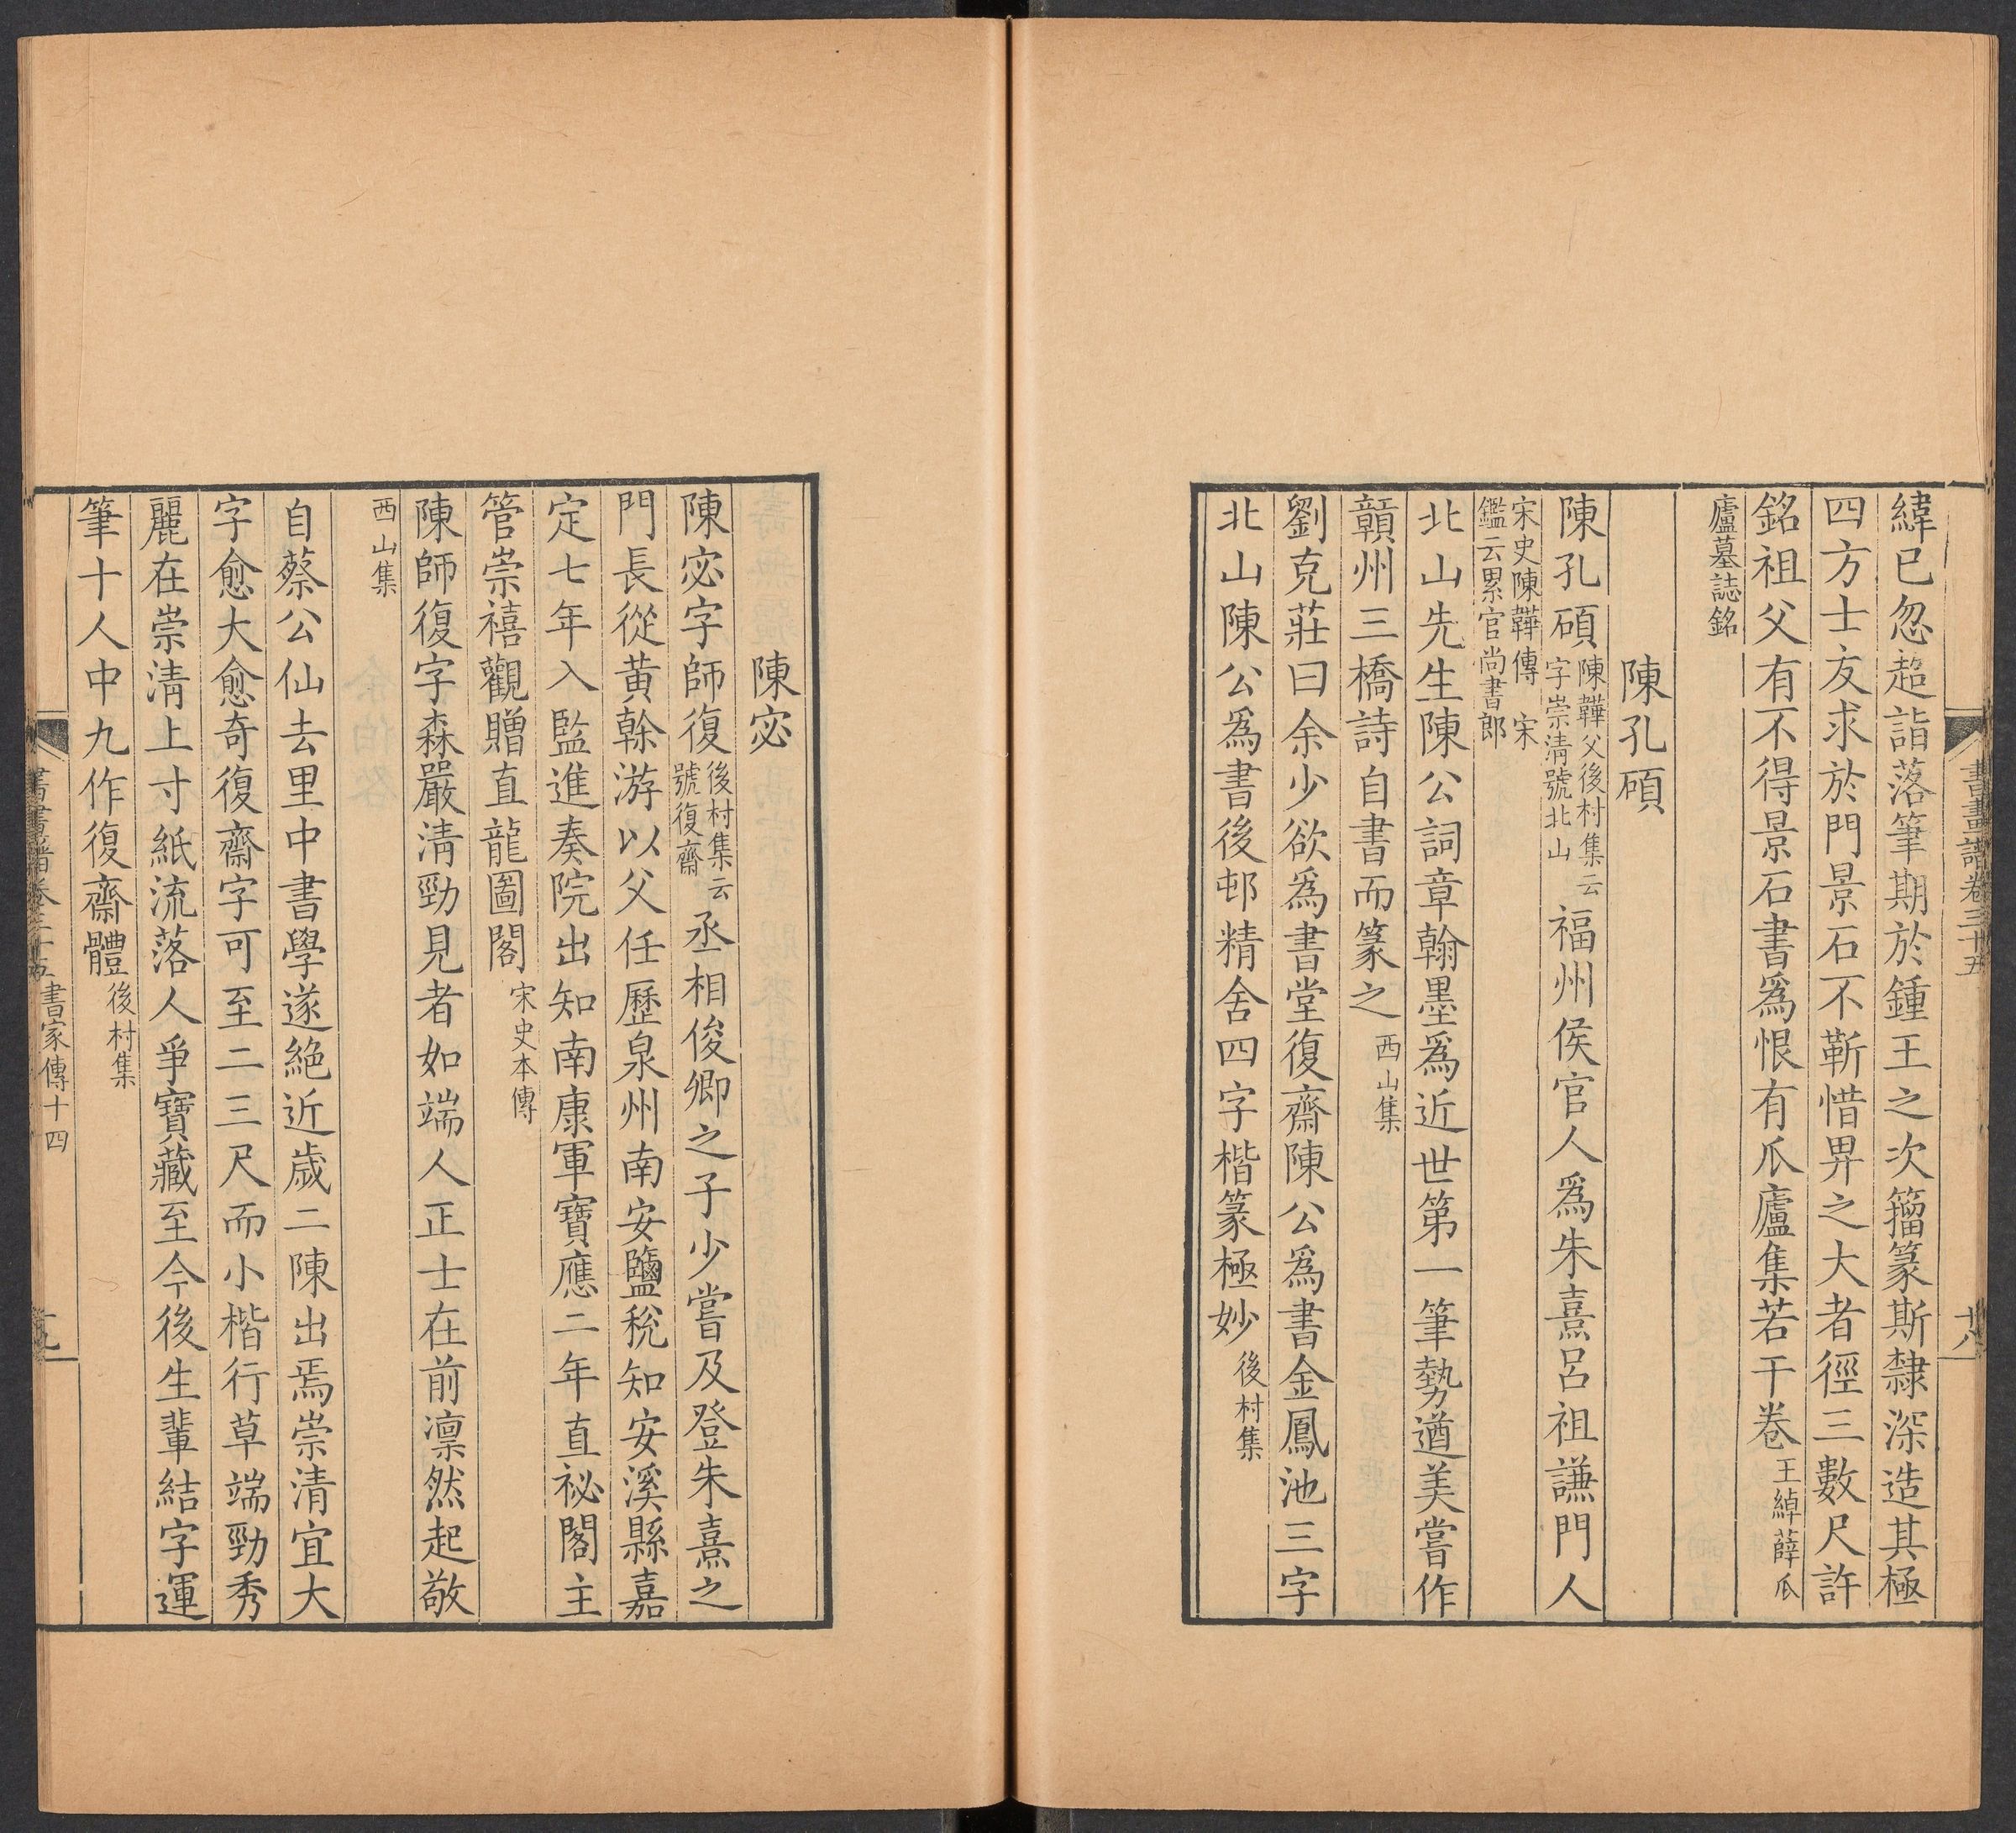 緯已忽超詣落筆期於鍾王之次籀篆斯隸深造其極
四方士友求於門景石不靳惜畀之大者徑三數尺許
銘祖父有不得景石書爲恨有瓜廬集若干卷王綽薛瓜
廬墓誌銘
陳孔碩
陳孔碩陳韡父後村集云字崇淸號北山福州侯官人爲朱熹呂祖謙門人
宋史陳韡傳 宋鑑云累官尚書郎
北山先生陳公詞章翰墨爲近世第一筆勢遒美嘗作
贑州三橋詩自書而篆之西山集
劉克莊曰余少欲爲書堂復齋陳公爲書金鳳池三字
北山陳公爲書後邨精舍四字楷篆極妙後村集
書畫譜卷三十五
十八
陳宓
陳宓字師復後村集云號復齋丞相俊卿之子少嘗及登朱熹之
門長從黄榦游以父任歷泉州南安鹽稅知安溪縣嘉
定七年入監進奏院出知南康軍寶應二年直祕閣主
管崇禧觀贈直龍圖閣宋史本傳
陳師復字森嚴淸勁見者如端人正士在前凛然起敬
西山集
自蔡公仙去里中書學遂絶近歲二陳出焉崇清宜大
字愈大愈奇復齋字可至二三尺而小楷行草端勁秀
麗在崇淸上寸紙流落人爭寶藏至今後生輩結字運
筆十人中九作復齋體後村集
書畫譜卷三十五 書家傳十四
十九